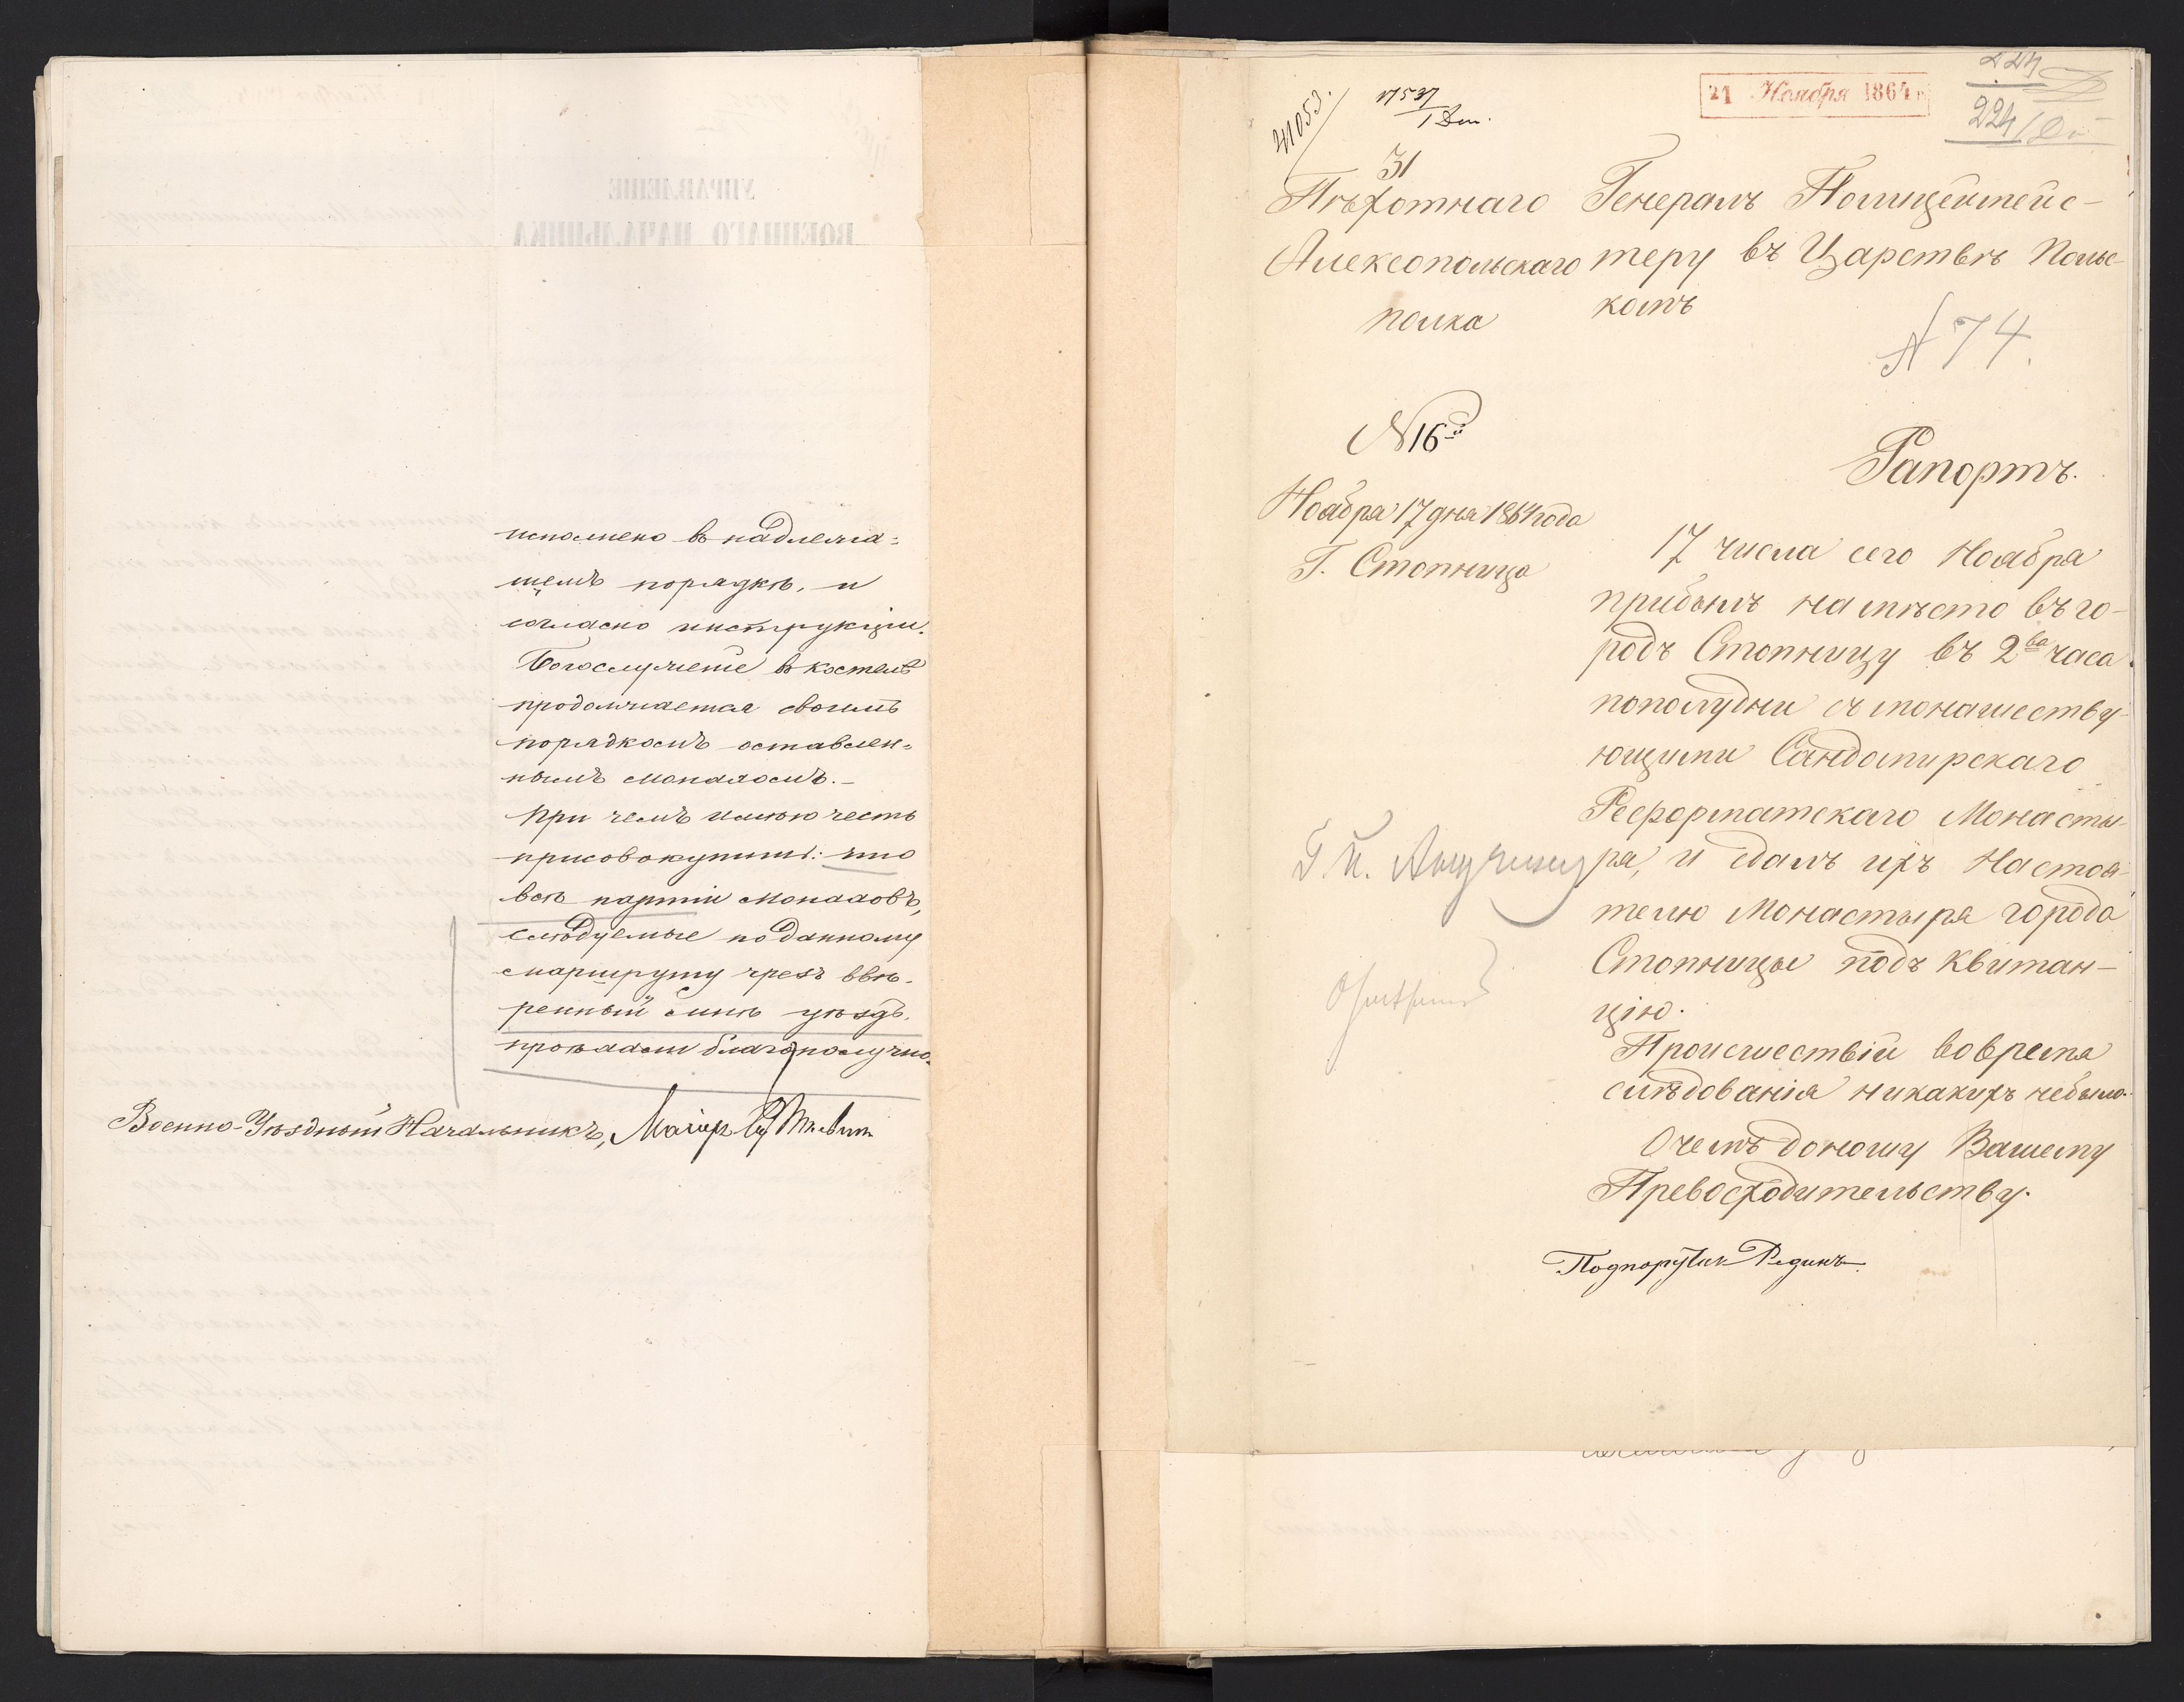 исполнено въ надлежа=
щемъ порядкѣ, и
согласно инструкціи.
Богослуженіе въ костелѣ
продолжается своимъ
порядкомъ оставлен=
нымъ монахомъ.–
При чемъ имѣю честь
присовокупить: что
всѣ партіи монаховъ,
слѣдуемые по данному
маршруту чрезъ ввѣ-
ренный мнѣ уѣздъ,
проѣхали благополучно.
Военно-Уѣздный Начальникъ, Маіоръ
21 Ноября 1864 г.
224
224
31
Пѣхотнаго
Алексопольскаго
полка
Генералъ Полицеймейс-
теру въ Царствѣ Поль-
комъ
N 74.
N 16й
Ноября 17 дня 1864 года
Г. Стопница
Рапортъ.
17 числа сего Ноября
прибылъ на мѣсто въ го-
родъ Стопницу въ 2ва часа
пополудни съ монашеству-
ющими Сандомирскаго
Реформатскаго Монасты-
ря, и сдалъ ихъ Настоя-
телю Монастыря города
Стопницы подъ квитан-
цію.
Происшествій вовремя
слѣдованія никакихъ небыло.
Очемъ доношу Вашему
Превосходительству.
Подпоручик Рединъ